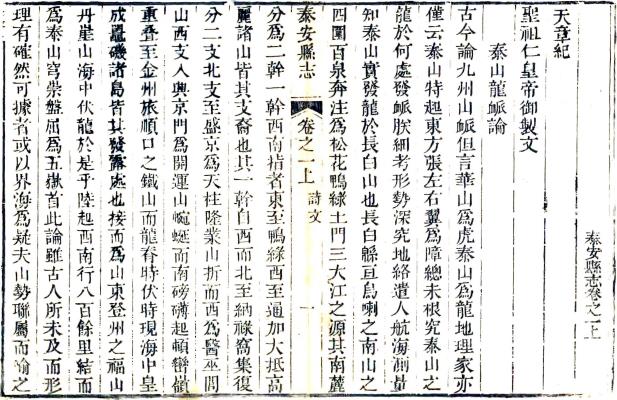 泰安縣志卷之一上
天章紀
聖祖仁皇帝御製文
泰山龍脈論
古今論九州山脈但言華山為虎泰山為龍地理家亦
僅云泰山特起東方張左右翼為障總未根究泰山之
龍於何處發脈朕細考形勢深究地絡遣人航海測量
知泰山實發龍於長白山也長白緜亘烏喇之南山之
四圍百泉奔注為松花鴨綠土門三大江之源其南麓
泰安縣志 卷之一上 詩文 一
分為二幹一幹西南指者東至鴨綠西至通加大抵高
麗諸山皆其支裔也其一幹自西而北至納祿窩集復
分二支北支至盛京為天柱隆業山折而西為醫巫閭
山西支入興京門為開運山蜿蜒而南磅礴起頓巒嶺
重疊至金州旅順口之鐵山而龍脊時伏時現海中皇
成鼉磯諸島皆其發露處也接而為山東登州之福山
丹崖山海中伏龍於是乎陸起西南行八百餘里結而
為泰山穹崇盤屈為五嶽首此論雖古人所未及而形
理有確然可據者或以界海為疑夫山勢聯屬而喻之